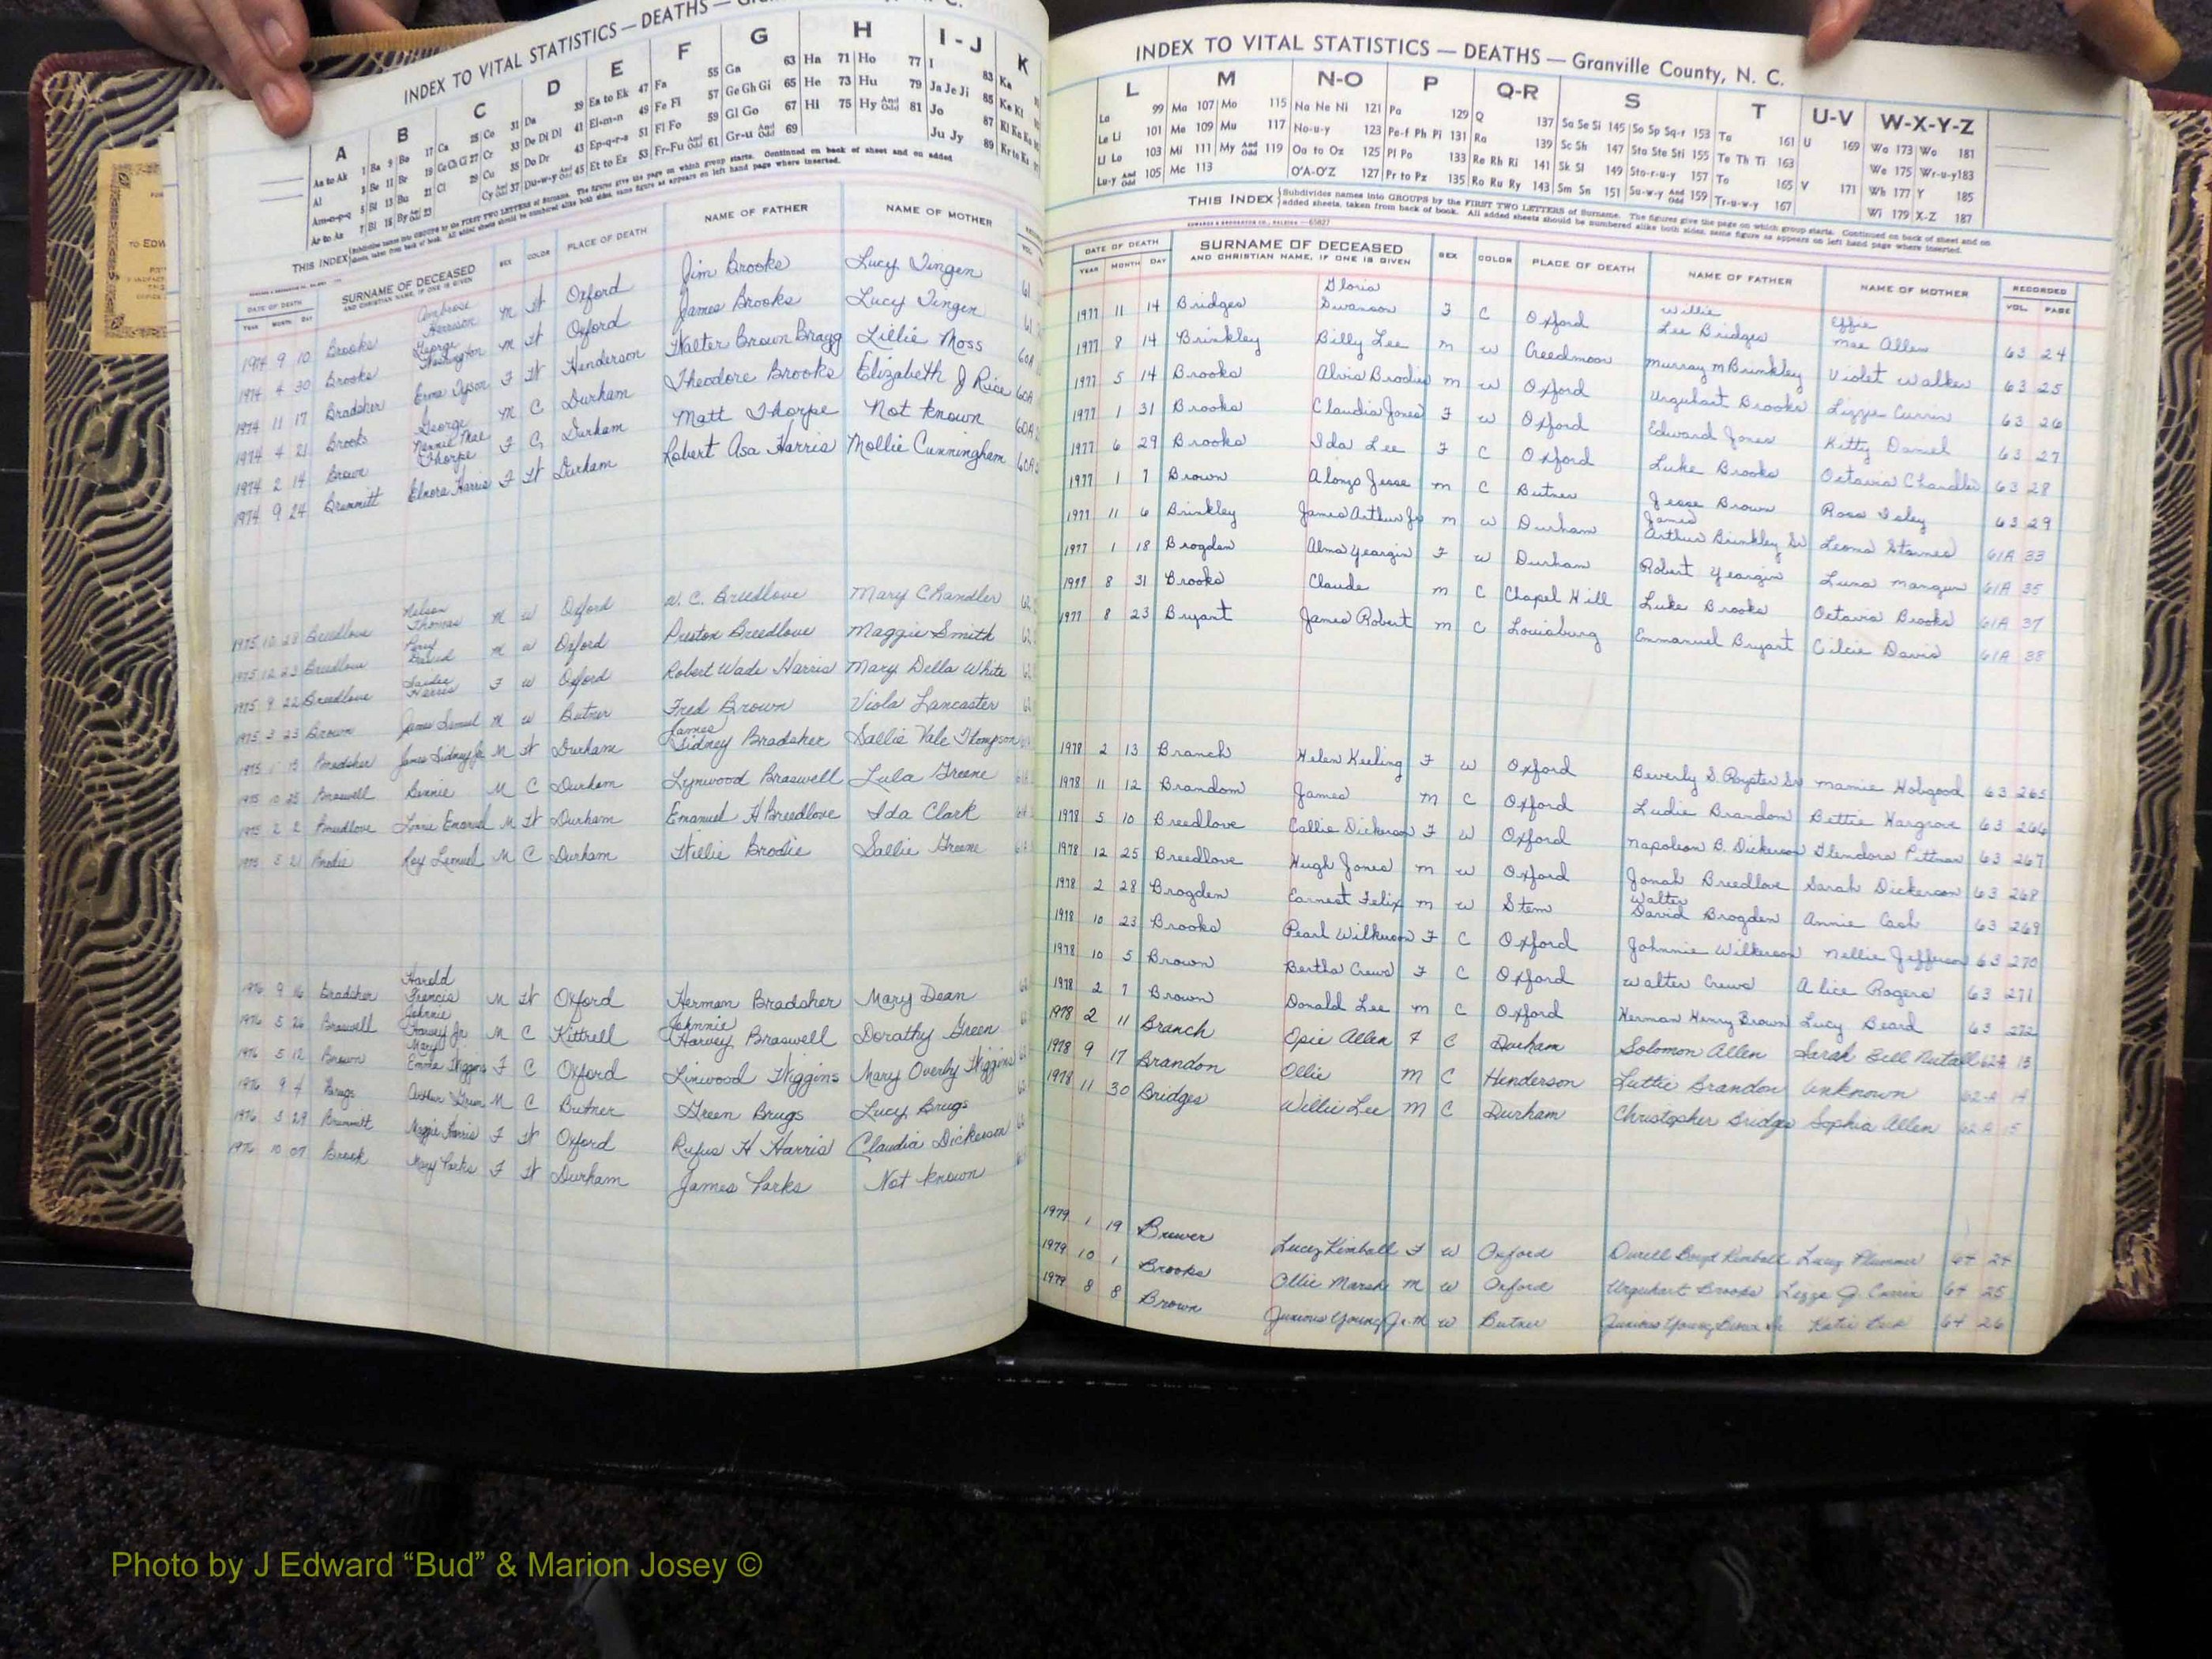 INDEX TO VITAL STATISTICS — DEATHS —
A B C D E F G H I-J K
THIS INDEX
DATE OF DEATH SURNAME OF DECEASED AND CHRISTIAN NAME, IF ONE IS GIVEN SEX COLOR PLACE OF DEATH NAME OF FATHER NAME OF MOTHER
YEAR MONTH DAY
1974 9 10 Brooks Ambrose Harrison M W Oxford Jim Brooks Lucy Tingen 61
1974 4 30 Brooks George Washington M W Oxford James Brooks Lucy Tingen 61
1974 11 17 Bradsher Erma Tyson F W Henderson Walter Brown Bragg Lillie Moss 60A
1974 4 21 Brooks George M C Durham Theodore Brooks Elizabeth J Rice 60A
1974 2 14 Brown Nannie Mae Thorpe F C Durham Matt Thorpe Not known 60A
1974 9 24 Brummitt Elnora Harris F W Durham Robert Asa Harris Mollie Cunningham 60A
1975 10 28 Breedlove Nelson Thomas M W Oxford W. C. Breedlove Mary Chandler 62
1975 12 23 Breedlove Perry David M W Oxford Preston Breedlove Maggie Smith 62
1975 9 22 Breedlove Harris F W Oxford Robert Wade Harris Mary Della White 62
1975 3 23 Brown James Samuel M W Butner Fred Brown Viola Lancaster 62
1975 1 15 Bradsher James Sidney Jr M W Durham James Sidney Bradsher Sallie Vale Thompson
1975 10 25 Braswell Bennie M C Durham Lynwood Braswell Lula Greene
1975 2 2 Breedlove Lonnie Emanuel M W Durham Emanuel H Breedlove Ida Clark
1975 5 21 Brodie Roy Lemuel M C Durham Willie Brodie Sallie Greene
1976 9 16 Bradsher Harold Francis M W Oxford Herman Bradsher Mary Dean
1976 5 26 Braswell Johnnie Harvey Jr M C Kittrell Johnnie Harvey Braswell Dorathy Green
1976 5 12 Brown Mary Emma Wiggins F C Oxford Linwood Wiggins Mary Overby Wiggins
1976 9 4 Brugs Arthur Green M C Butner Green Brugs Lucy Brugs
1976 3 29 Brummitt Maggie Harris F W Oxford Rufus H Harris Claudia Dickerson
1976 10 07 Brook Mary Parks F W Durham James Parks Not known
INDEX TO VITAL STATISTICS — DEATHS — Granville County, N. C.
L M N-O P Q-R S T U-V W-X-Y-Z
La 99 Ma 107 Mo 115 Na Ne Ni 121 Pa 129 Q 137 Sa Se Si 145 So Sp Sq-r 153 Ta 161 U 169 Wa 173 Wo 181
Le Li 101 Me 109 Mu 117 No-u-y 123 Pe-f Ph Pi 131 Ra 139 Sc Sh 147 Sta Ste Sti 155 Te Th Ti 163 We 175 Wr-u-y 183
Ll Lo 103 Mi 111 My And Odd 119 Oa to Oz 125 Pl Po 133 Re Rh Ri 141 Sk Sl 149 Sto-r-u-y 157 To 165 V 171 Wh 177 Y 185
Lu-y And Odd 105 Mc 113 O'A-O'Z 127 Pr to Pz 135 Ro Ru Ry 143 Sm Sn 151 Su-w-y And Odd 159 Tr-u-w-y 167 Wi 179 X-Z 187
THIS INDEX Subdivides names into GROUPS by the FIRST TWO LETTERS of Surname. The figures give the page on which group starts. Continued on back of sheet and on
added sheets, taken from back of book. All added sheets should be numbered alike both sides, same figure as appears on left hand page where inserted.
DATE OF DEATH SURNAME OF DECEASED AND CHRISTIAN NAME, IF ONE IS GIVEN SEX COLOR PLACE OF DEATH NAME OF FATHER NAME OF MOTHER RECORDED
YEAR MONTH DAY VOL. PAGE
1977 11 14 Bridges Gloria Swanson F C Oxford Willie Lee Bridges Effie Mae Allen 63 24
1977 8 14 Brinkley Billy Lee M W Creedmoor Murray M Brinkley Violet Walker 63 25
1977 5 14 Brooks Alvis Brodie M W Oxford Urquhart Brooks Lizzie Currin 63 26
1977 1 31 Brooks Claudia Jones F W Oxford Edward Jones Kitty Daniel 63 27
1977 6 29 Brooks Ida Lee F C Oxford Luke Brooks Octavia Chandler 63 28
1977 1 7 Brown Alonzo Jesse M C Butner Jesse Brown Rosa Isley 63 29
1977 11 6 Brinkley James Arthur Jr M W Durham James Arthur Brinkley Sr Leona Starnes 61A 33
1977 1 18 Brogden Alma Yeargin F W Durham Robert Yeargin Luna Mangum 61A 35
1977 8 31 Brooks Claude M C Chapel Hill Luke Brooks Octavia Brooks 61A 37
1977 8 23 Bryant James Robert M C Louisburg Emmanuel Bryant Cilcie Davis 61A 38
1978 2 13 Branch Helen Keeling F W Oxford Beverly S. Royster Sr Mamie Hobgood 63 265
1978 11 12 Brandon James M C Oxford Ludie Brandon Bettie Hargrove 63 266
1978 5 10 Breedlove Callie Dickerson F W Oxford Napoleon B. Dickerson Glendora Pittman 63 267
1978 12 25 Breedlove Hugh Jones M W Oxford Jonah Breedlove Sarah Dickerson 63 268
1978 2 28 Brogden Earnest Felix M W Stem Walter David Brogden Annie Cash 63 269
1978 10 23 Brooks Pearl Wilkerson F C Oxford Johnnie Wilkerson Nellie Jefferson 63 270
1978 10 5 Brown Bertha Crews F C Oxford Walter Crews Alice Rogers 63 271
1978 2 7 Brown Donald Lee M C Oxford Herman Henry Brown Lucy Beard 63 272
1978 2 11 Branch Opie Allen F C Durham Solomon Allen Sarah Bell Nutall 62A 13
1978 9 17 Brandon Ollie M C Henderson Luttie Brandon Unknown 62-A 14
1978 11 30 Bridges Willie Lee M C Durham Christopher Bridges Sophia Allen 62A 15
1979 1 19 Brewer Lucy Kimball F W Oxford Durell Boyd Kimball Lucy Plummer 64 24
1979 10 1 Brooks Ollie Marsh M W Oxford Urquhart Brooks Lizzie J. Currin 64 25
1979 8 8 Brown Junious Young Jr. M W Butner Junious Young Brown Sr Katie 64 26
Photo by J Edward “Bud” & Marion Josey ©